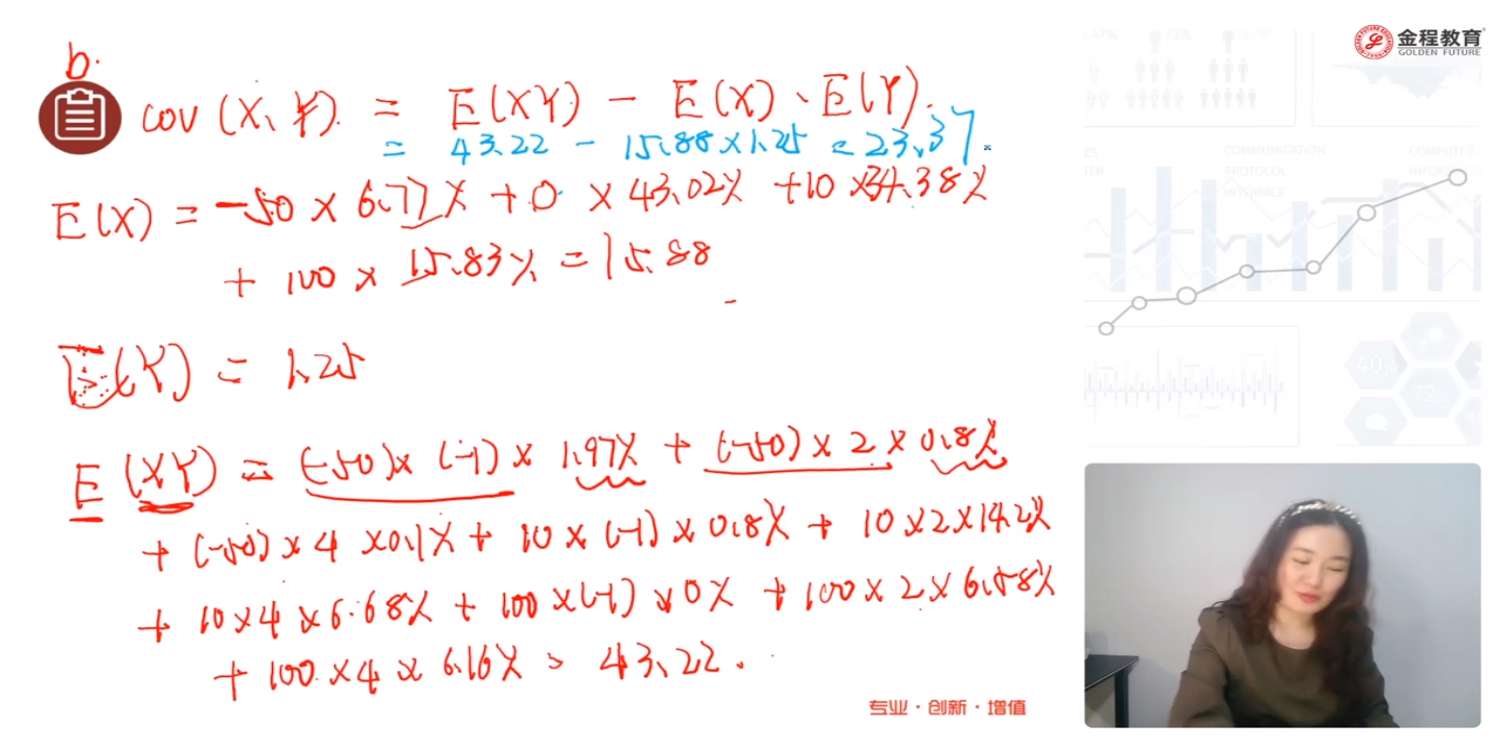 b.
cov (X、Y) = E(XY) - E(X)、E(Y).
= 43.22 - 15.88×1.25 = 23.37.
E(X) = -50 × 6.77% + 0 × 43.02% + 10 × 34.38%
+ 100 × 15.83% = 15.88
E(Y) = 1.25
E (XY) = (-50)× (-1) × 1.97% + (-50) × 2 × 0.8%
+ (-50) × 4 × 0.1% + 10 × (-1) × 0.8% + 10 × 2 × 14.2%
+ 10 × 4 × 6.68% + 100 × (-1) × 0% + 100 × 2 × 6.58%
+ 100 × 4 × 6.16% = 43.22.
专业·创新·增值
金程教育
GOLDEN FUTURE
COMMUNICATION
PROTOCOL